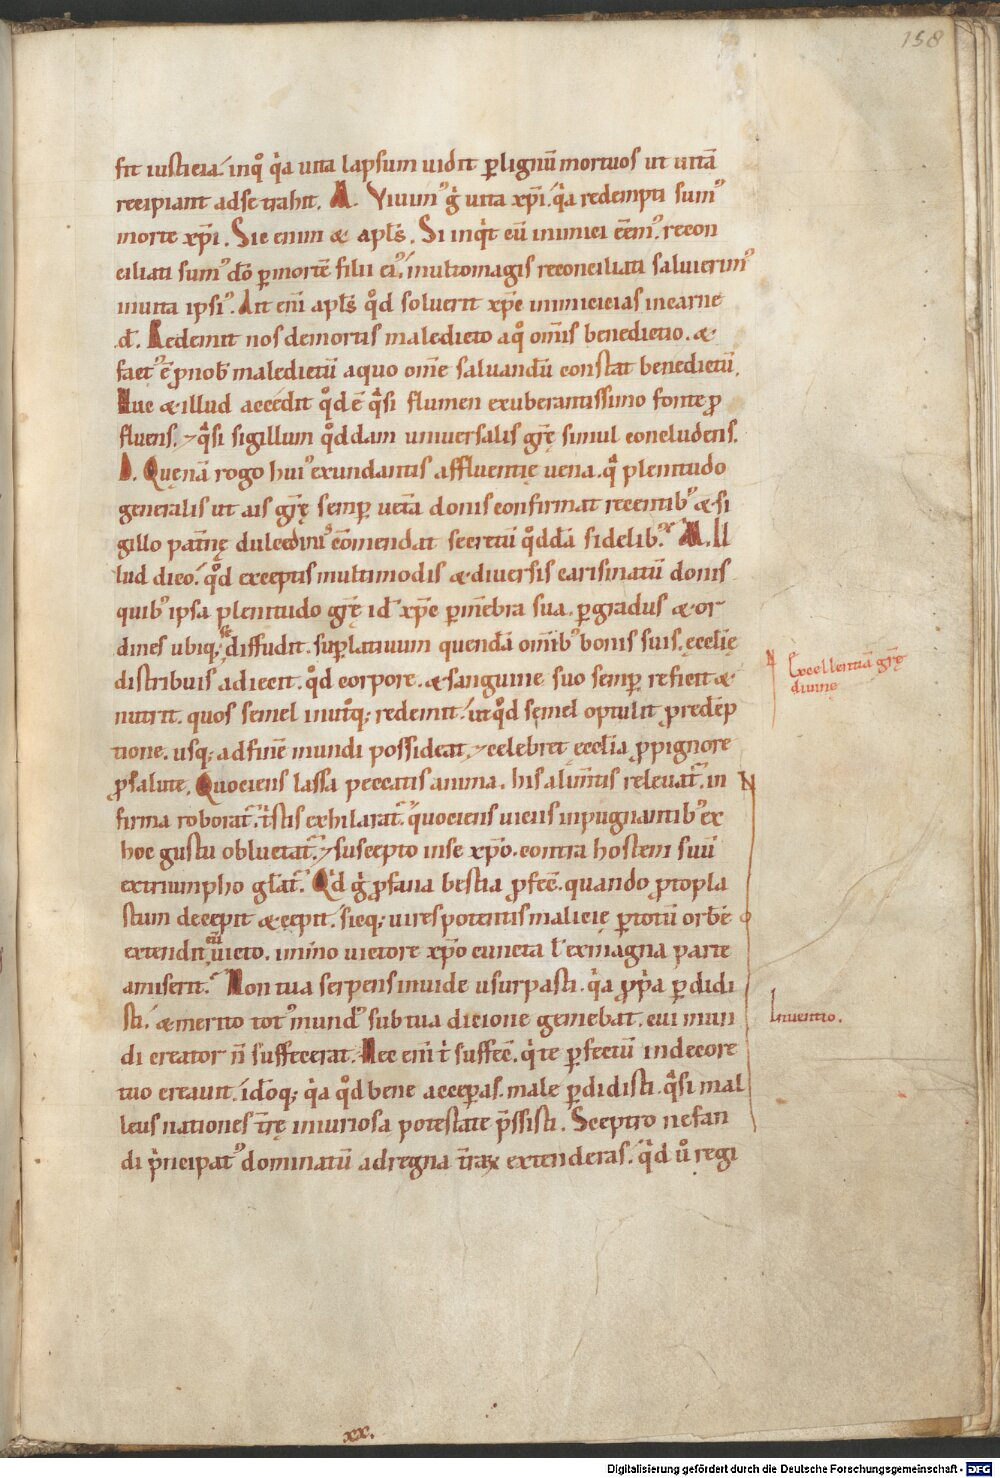 158
fit iusticia. inq̊ qͥa uita lapsum uidit ꝑ lignū mortuos ut uitā
recipiant ad se trahit. M. Viuimꝰ gͥ uita xp̄i. qͥa redempti sumꝰ
morte xp̄i. Sic enim & apl̄s. Si inqͥt cū inimici eēmꝰ. recon
ciliati sumꝰ dō ꝑ mortē filii eiꝰ. multomagis reconciliati saluierimꝰ
inuita ipsiꝰ. Ait eni apl̄s qd̊ soluerit xp̄c inimicicias in carne
.d. Redemit nos de mortis maledicto a q̊ om̄is benedictio. &
factꝰ ē ꝓ nob̄ maledictū a quo om̄e saluandū constat benedictū.
Huc & illud accedit qd̊ ē qͣsi flumen exuberantissimo fonte ꝓ
fluens. & qͣsi sigillum qd̊dam uniuersalis gr̄ę simul concludens.
D. Quęnā rogo huiꝰ exundantis affluentię uena. qͣ plenitudo
generalis ut ais gr̄ę semꝑ uetā donis confirmat recentibꝰ & si
gillo patnę dulcedinis cōmendat secretū qd̊dā fidelibꝰ. M. Il
lud dico. qd̊ exceptis multimodis & diuersis carismatū donis
quibꝰ ipsa plenitudo gr̄ę id̄ xp̄c ꝑ mēbra sua. ꝑ gradus & or
dines ubiq; se diffudit. suꝑlatiuum quendā omībꝰ bonis suis. ęcclię
distribuis adiecit. qd̊ corpore. & sanguine suo semꝑ reficit &
nutrit. quos semel inutͦq; redemit. ut qd̊ semel optulit ꝓ redēp
tione. usq; ad finē mundi possideat, & celebret ecclīa ꝓ pignore
ꝓ salute. Quociens lassa peccatis anima. his alimtis releuat̄. in
firma roborat̄. tͥstis exhilarat̄. quociens uiciis inpugnantibꝰ ex
hoc gustu obluctat̄. & suscepto in se xp̄o. contra hostem suū
ex triumpho gl̄at̄. Qd gͥ ꝓfana bestia ꝓfec̄. quando ꝓtopla
stum decepit & cepit. sicq; uires potentis malicię ꝑ totū orbē
extendit, eū uicto. immo uictore xp̄o cuncta l̄ ex magna parte
amiserit. Non tua serpens inuide usurpasti. qͥa ꝓpͥa ꝑdidi
sti. & merito totꝰ mundꝰ sub tua dicione gemebat. cui mun
di creator n̄ suffecerat. Nec eni tͥ suffec̄. qͥ te ꝑfectū in decore
tuo creauit. id̊oq; qͥa qd̊ bene acceꝑas. male ꝑdidisti. qͣsi mal
leus nationes tr̄ę iniuriosa potestate p̄ssisti. Sceptro nefan
di pͥncipatꝰ dominatū ad regna tr̄aꝝ extenderas. qͥd ů regi
Excellentiā gr̄ę
diuinę
Inuentio.
xx.
Digitalisierung gefördert durch die Deutsche Forschungsgemeinschaft - DFG